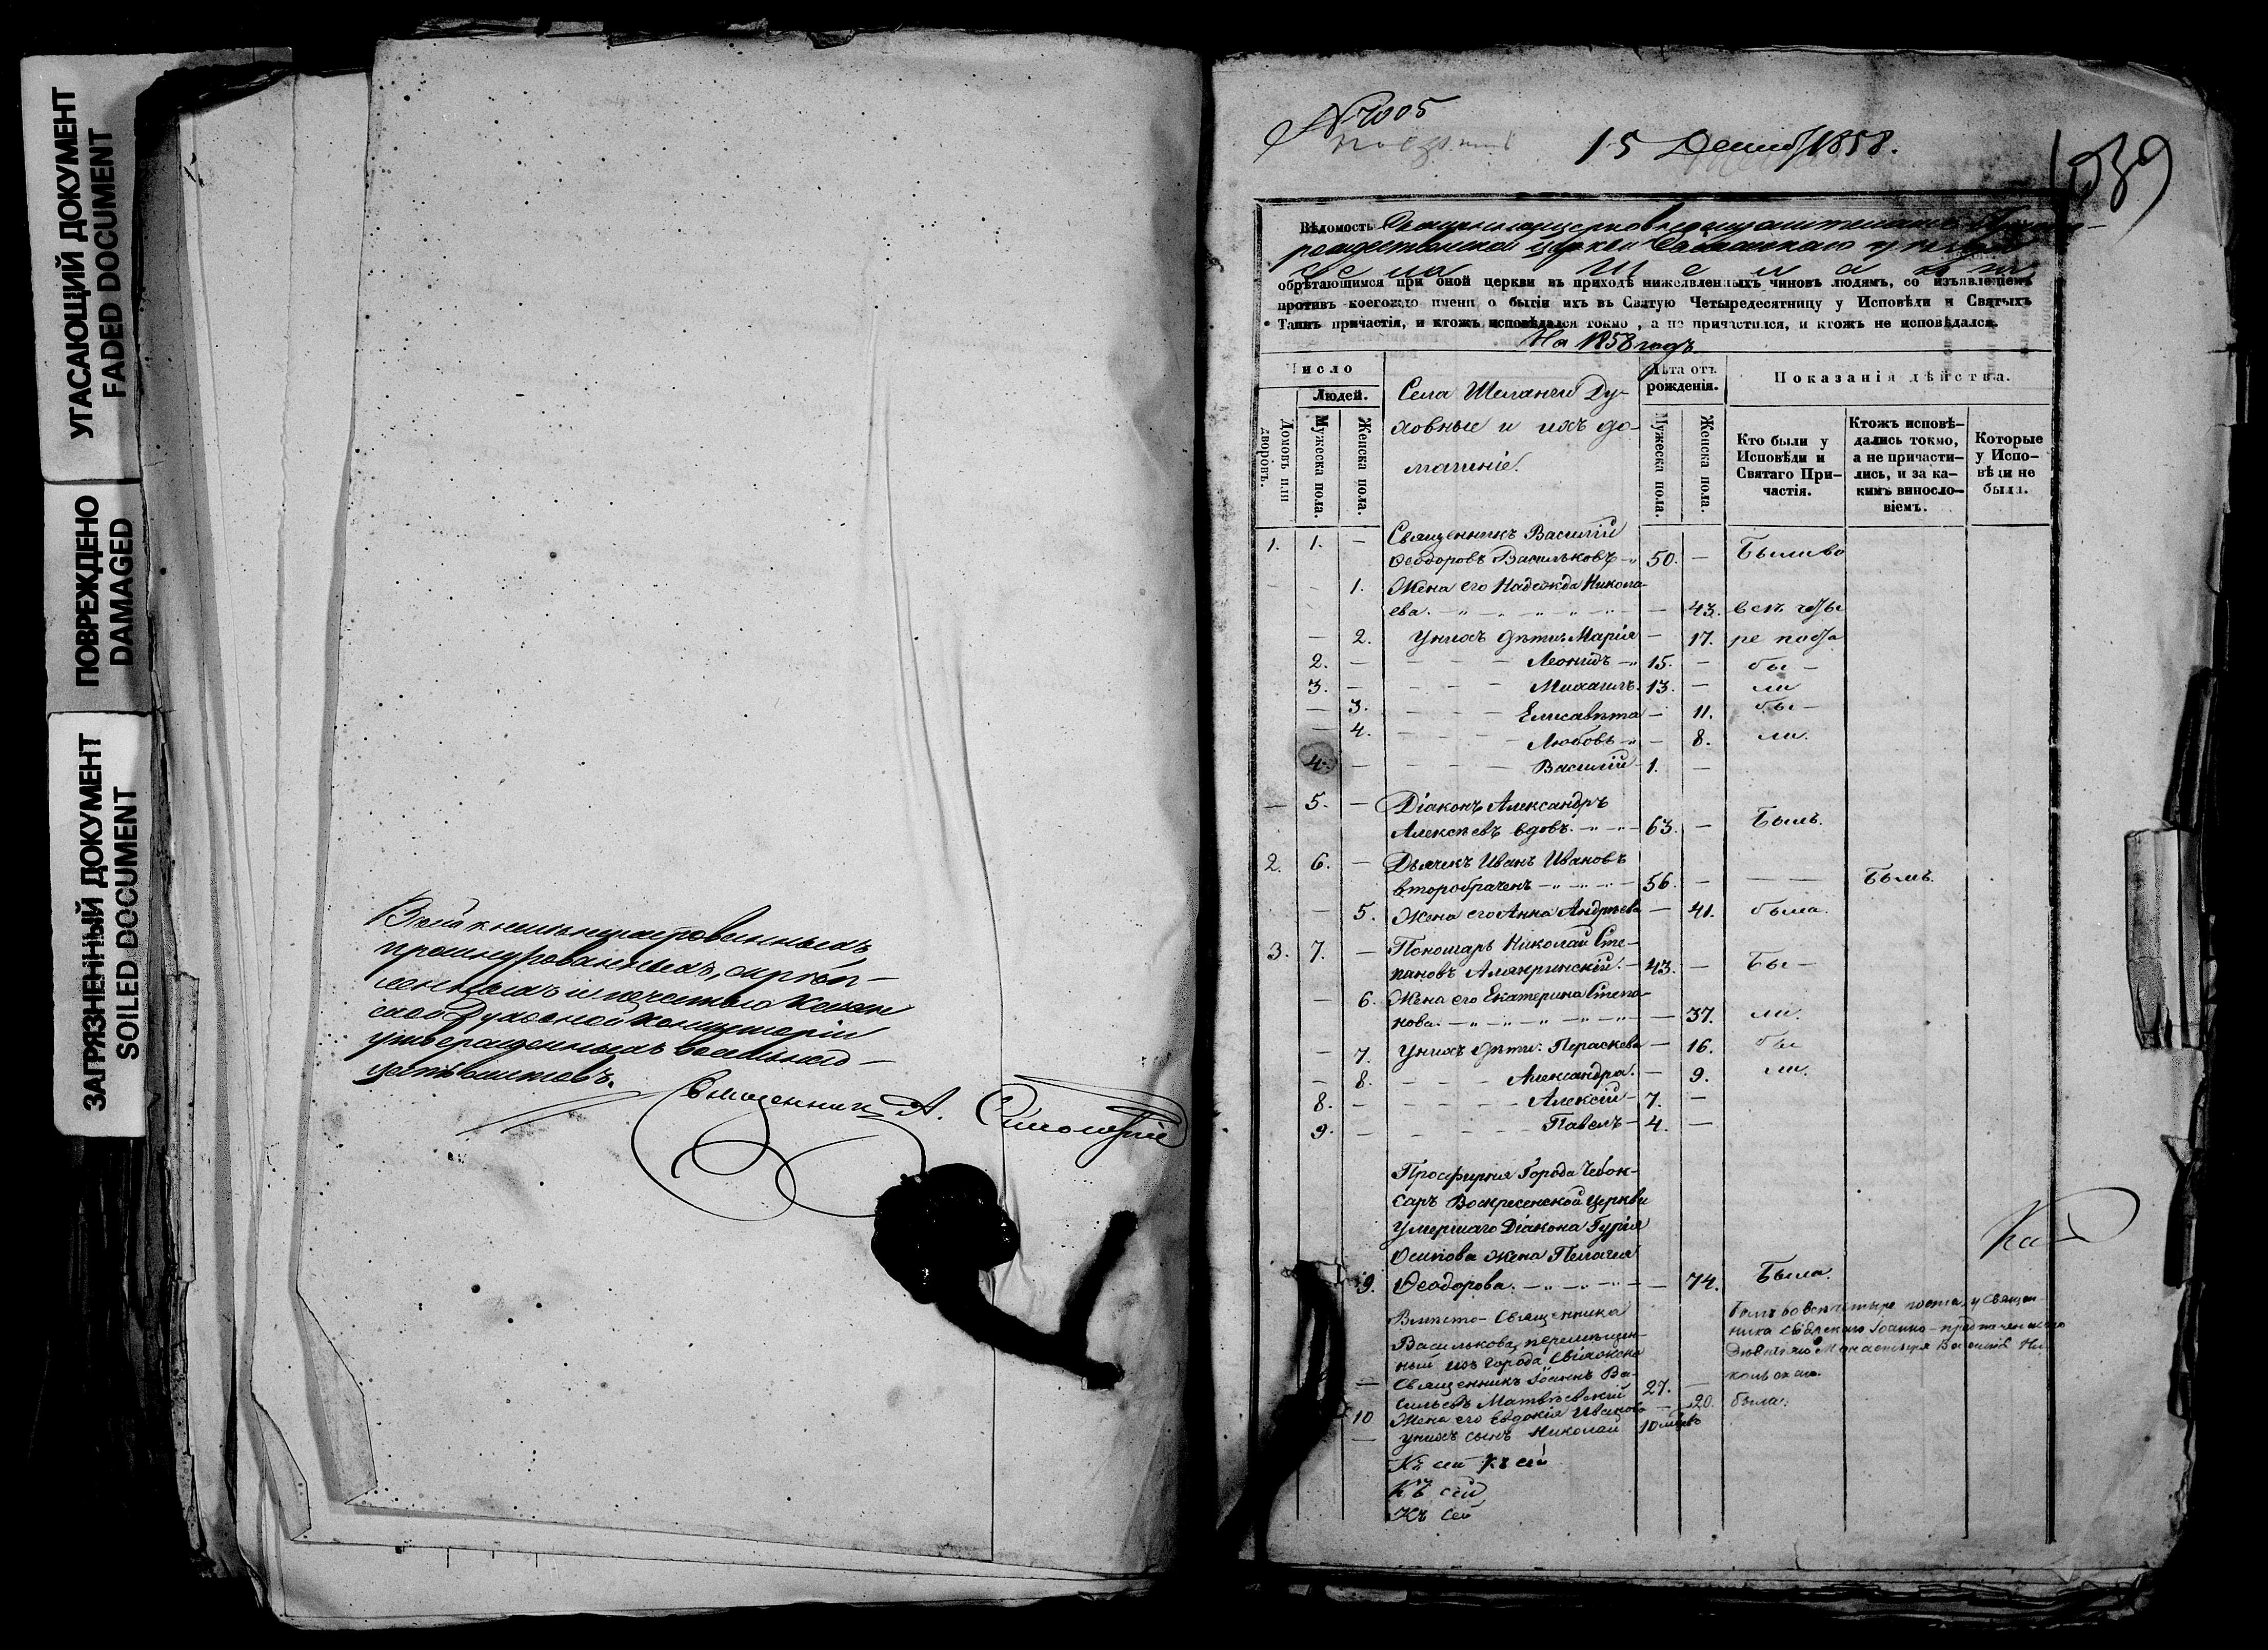 УГАСАЮЩИЙ ДОКУМЕНТ
FADED DOCUMENT
ПОВРЕЖДЕНО
DAMAGED
ЗАГРЯЗНЕННЫЙ ДОКУМЕНТ
SOILED DOCUMENT
прошнурованныхъ, скрѣп-
ленныхъ и печатью Казан
ской Духовной Консисторіи
утвержденныхъ
листовъ.
Священникъ А.
15 Декаб 1858.
Вѣдомость
церкви
села Шеланги
обрѣтающимся при оной церкви въ приходѣ нижеявленныхъ чиновъ людямъ, со изъявленіемъ
противъ коегождо имени о бытіи ихъ въ Святую Четыредесятницу у Исповѣди и Святыхъ
Таинъ причастія, и ктожъ исповѣдался токмо, а не причастился, и ктожъ не исповѣдался.
На 1858 годъ.
Число
Людей.
Домовъ или дворовъ.
Мужеска пола.
Женска пола.
Села Шеланги Ду-
ховные и ихъ до-
машніе.
Лѣта отъ рожденія.
Мужеска пола.
Женска пола.
Показанія дѣйства.
Кто были у Исповѣди и Святаго При-частія.
Ктожъ исповѣ-дались токмо, а не причасти-лись, и за ка-кимъ виносло-віемъ.
Которые у Испо-вѣди не были.
1. 1. — Священникъ Василій
Ѳеодоровъ Васильковъ 50. — Были во
1. Жена его Надежда Никола-
ева. — 43. всѣ четы
— 2. У нихъ дѣти: Марія — 17. ре поста
2. — Леонидъ 15. — бы —
3. — Михаилъ. 13. — ли
— 3. Елисавѣта — 11. бы —
— 4. Любовь — 8. ли.
4. — Василій 1. —
— 5. — Діаконъ Александръ
Алексѣевъ вдовъ. 63. — Былъ.
2. 6. — Дьячекъ Иванъ Ивановъ
второбраченъ 56. — — Былъ.
— 5. Жена его Анна Андреева — 41. была.
3. 7. — Пономарь Николай Сте-
пановъ Алякринскій. 43. — Бы —
— 6. Жена его Екатерина Степа-
нова. — 37. ли.
— 7. У нихъ дѣти: Параскева — 16. бы
— 8. Александра. — 9. ли.
8. — Алексій 7. —
9. — Павелъ 4. —
Просфирня Города Чебок-
саръ Воскресенской Церкви
умершаго Діакона Гурія
Осипова жена Пелагія
9. Ѳеодорова. — 74. Была.
Вмѣсто Священника
Василькова, перемѣщен-
ный изъ города Свіяжска
— Священникъ Іоаннъ Ва-
сильевъ Матвѣевскій 27. —
10 Жена его Евдокія Иванова — 20. была.
— у нихъ сынъ Николай 10 мѣсяцъ
Былъ во всѣ четыре поста, у священ-
ника Свіяжскаго Іоанно-Предтеченскаго
Дѣвичьяго Монастыря Василія Ни
Къ сей Къ сей
Къ сей
Къ сей